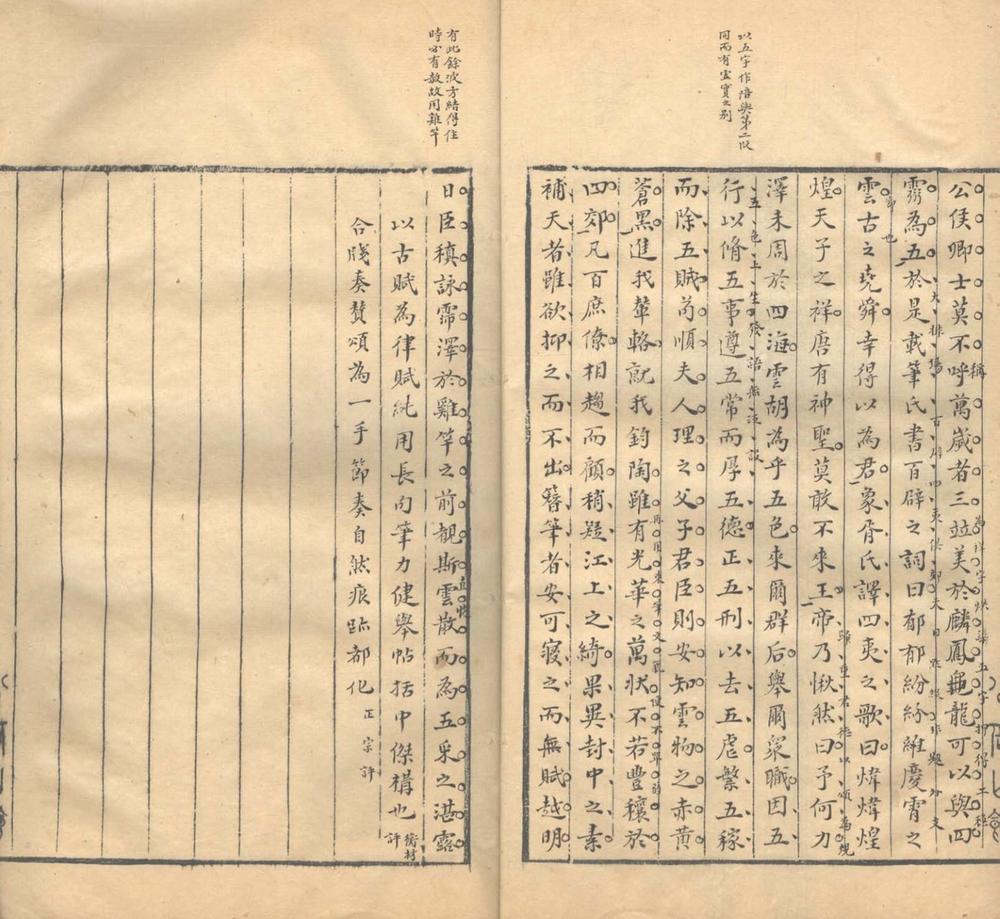 以五字作陪與第二段
同而有虛實之別
公侯卿士莫不呼萬歲者三竝美於麟鳳龜龍可以與四
靈為五於是載筆氏書百辟之詞曰郁郁紛紛維慶霄之
雲古之堯舜幸得以為君象胥氏譯四夷之歌曰煒煒煌
煌天子之祥唐有神聖莫敢不來王帝乃愀然曰予何力
澤未周於四海雲胡為乎五色來爾群后舉爾眾職因五
五色上生發語無泛設
行以脩五事遵五常而厚五德正五刑以去五虐繁五稼
而除五賊苟順夫人理之父子君臣則安知雲物之赤黃
蒼黑進我輦輅就我鈞陶雖有光華之萬狀不若豐穰於
四郊凡百庶僚相趨而顧稍疑江上之綺果異封中之素
補天者雖欲抑之而不出簪筆者安可寢之而無賦越明
有此餘波方結得住
時必有赦故用雞竿
日臣稹詠霈澤於雞竿之前觀斯雲散而為五采之湛露
以古賦為律賦純用長句筆力健舉帖括中傑構也
評
合牋奏贊頌為一手節奏自然痕跡都化
正宗評